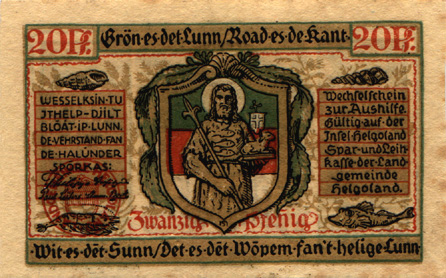 20Pf.
Grön·es·det·Lunn/Road·es·de·Kant·
20Pf.
WESSELKSIN·TU
JTHELP-DJILT
BLÓAT·IP·LUNN.
DE·VEHRSTAND·FAN
DE·HALÜNDER
SPÓRKAS:
Wechselschein
zur Aushilfe.
Gültig·auf·der
Insel·Helgoland
Spar-und Leih
kasse·der·Land-
gemeinde
Helgoland.
Zwanzig Pfennig
·Wit·es·dët·Sunn/Det·es·dët·Wöpem·fan't·helige·Lunn·